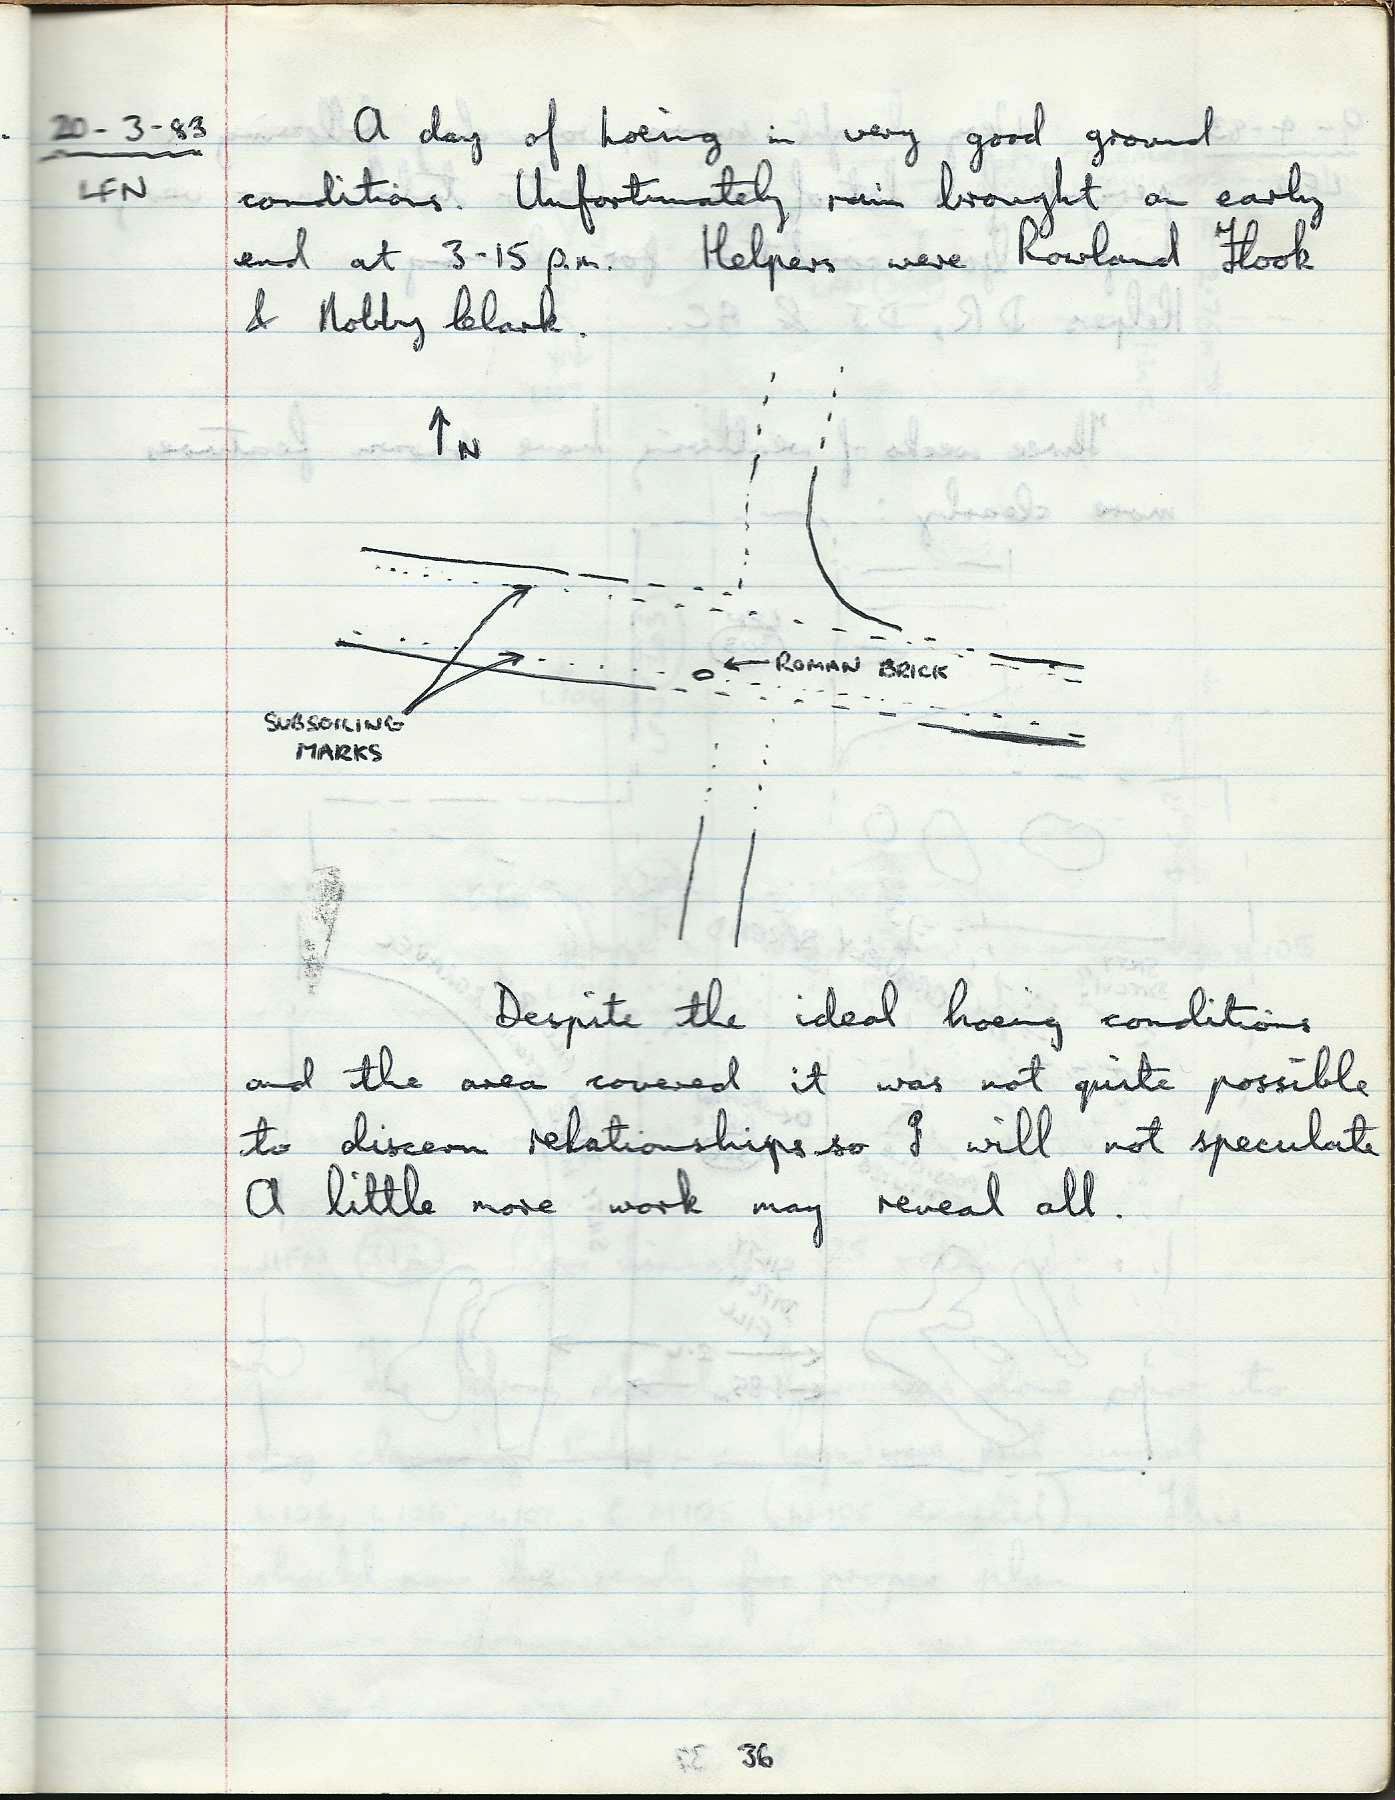 20-3-83
LFN
A day of hoeing in very good ground
conditions. Unfortunately rain brought an early
end at 3-15 p.m. Helpers were Rowland Flook
& Nobby Clark.
↑N
ROMAN BRICK
SUBSOILING
MARKS
Despite the ideal hoeing conditions
and the area covered it was not quite possible
to discern relationships so I will not speculate
A little more work may reveal all.
36